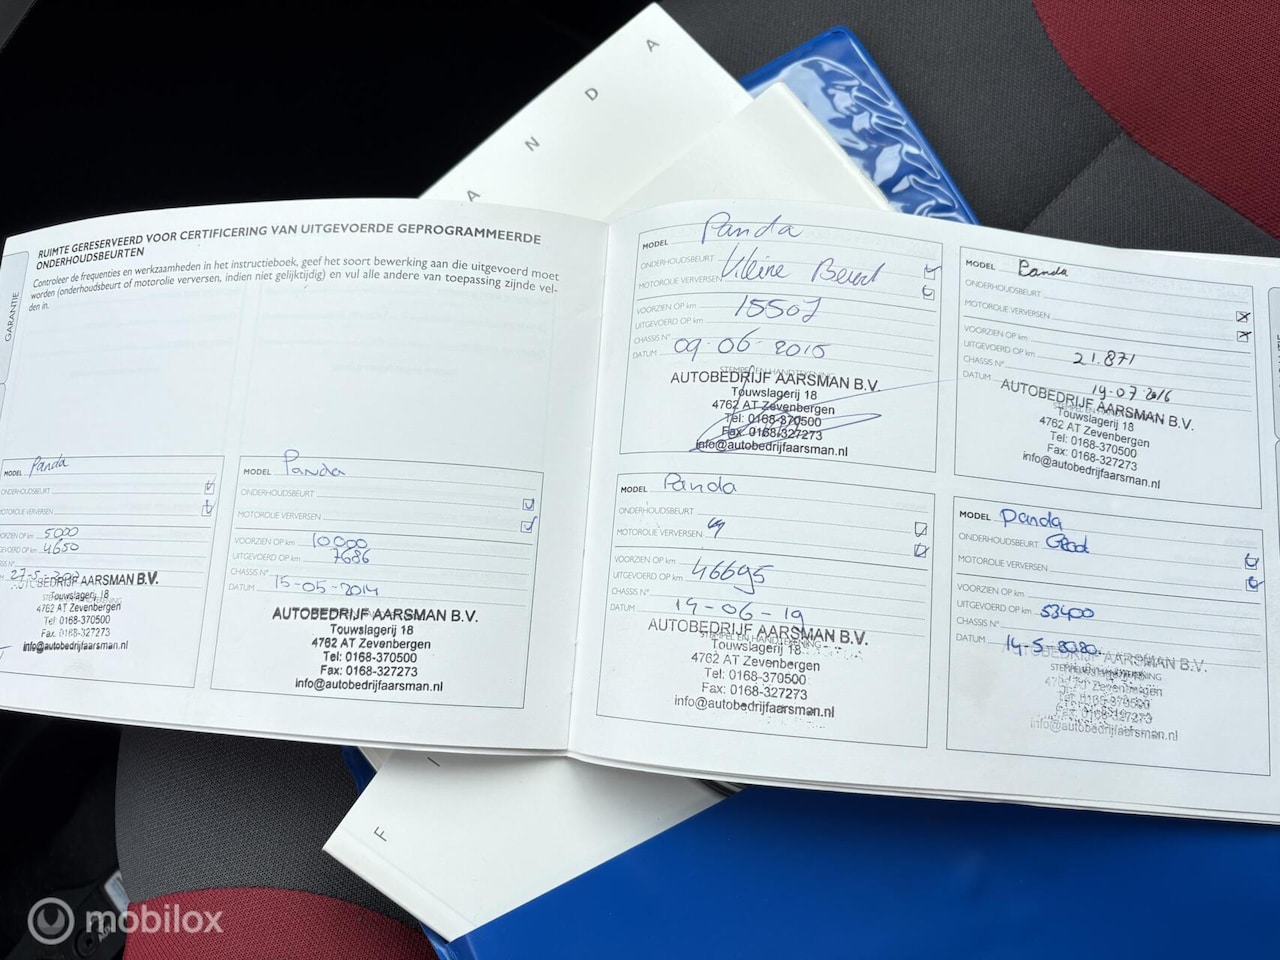 PANDA
F I
GARANTIE
RUIMTE GERESERVEERD VOOR CERTIFICERING VAN UITGEVOERDE GEPROGRAMMEERDE
ONDERHOUDSBEURTEN
Controleer de frequenties en werkzaamheden in het instructieboek, geef het soort bewerking aan die uitgevoerd moet
worden (onderhoudsbeurt of motorolie verversen, indien niet gelijktijdig) en vul alle andere van toepassing zijnde vel-
den in.
MODEL Panda
ONDERHOUDSBEURT
MOTOROLIE VERVERSEN
5000
4650
AUTOBEDRIJF AARSMAN B.V.
Touwslagerij 18
4762 AT Zevenbergen
Tel: 0168-370500
Fax: 0168-327273
info@autobedrijfaarsman.nl
MODEL Panda
ONDERHOUDSBEURT
MOTOROLIE VERVERSEN
VOORZIEN OP km 10000
UITGEVOERD OP km 7686
CHASSIS N°
DATUM 15-05-2014
AUTOBEDRIJF AARSMAN B.V.
Touwslagerij 18
4762 AT Zevenbergen
Tel: 0168-370500
Fax: 0168-327273
info@autobedrijfaarsman.nl
MODEL Panda
ONDERHOUDSBEURT Kleine Beurt
MOTOROLIE VERVERSEN
VOORZIEN OP km 15507
UITGEVOERD OP km
CHASSIS N°
DATUM 09-06-2015
STEMPEL EN HANDTEKENING
AUTOBEDRIJF AARSMAN B.V.
Touwslagerij 18
4762 AT Zevenbergen
Tel: 0168-370500
Fax: 0168-327273
info@autobedrijfaarsman.nl
MODEL Panda
ONDERHOUDSBEURT
MOTOROLIE VERVERSEN
VOORZIEN OP km
UITGEVOERD OP km 21.871
CHASSIS N°
DATUM 19-07-2016
AUTOBEDRIJF AARSMAN B.V.
STEMPEL EN HANDTEKENING
Touwslagerij 18
4762 AT Zevenbergen
Tel: 0168-370500
Fax: 0168-327273
info@autobedrijfaarsman.nl
MODEL Panda
ONDERHOUDSBEURT
MOTOROLIE VERVERSEN
VOORZIEN OP km 46695
UITGEVOERD OP km
CHASSIS N°
DATUM 19-06-19
AUTOBEDRIJF AARSMAN B.V.
STEMPEL EN HANDTEKENING
Touwslagerij 18
4762 AT Zevenbergen
Tel: 0168-370500
Fax: 0168-327273
info@autobedrijfaarsman.nl
MODEL Panda
ONDERHOUDSBEURT Groot
MOTOROLIE VERVERSEN
VOORZIEN OP km
UITGEVOERD OP km 53400
CHASSIS N°
DATUM 14-5-2020.
AUTOBEDRIJF AARSMAN B.V.
4762 AT Zevenbergen
Tel: 0168-370500
Fax: 0168-327273
info@autobedrijfaarsman.nl
mobilox